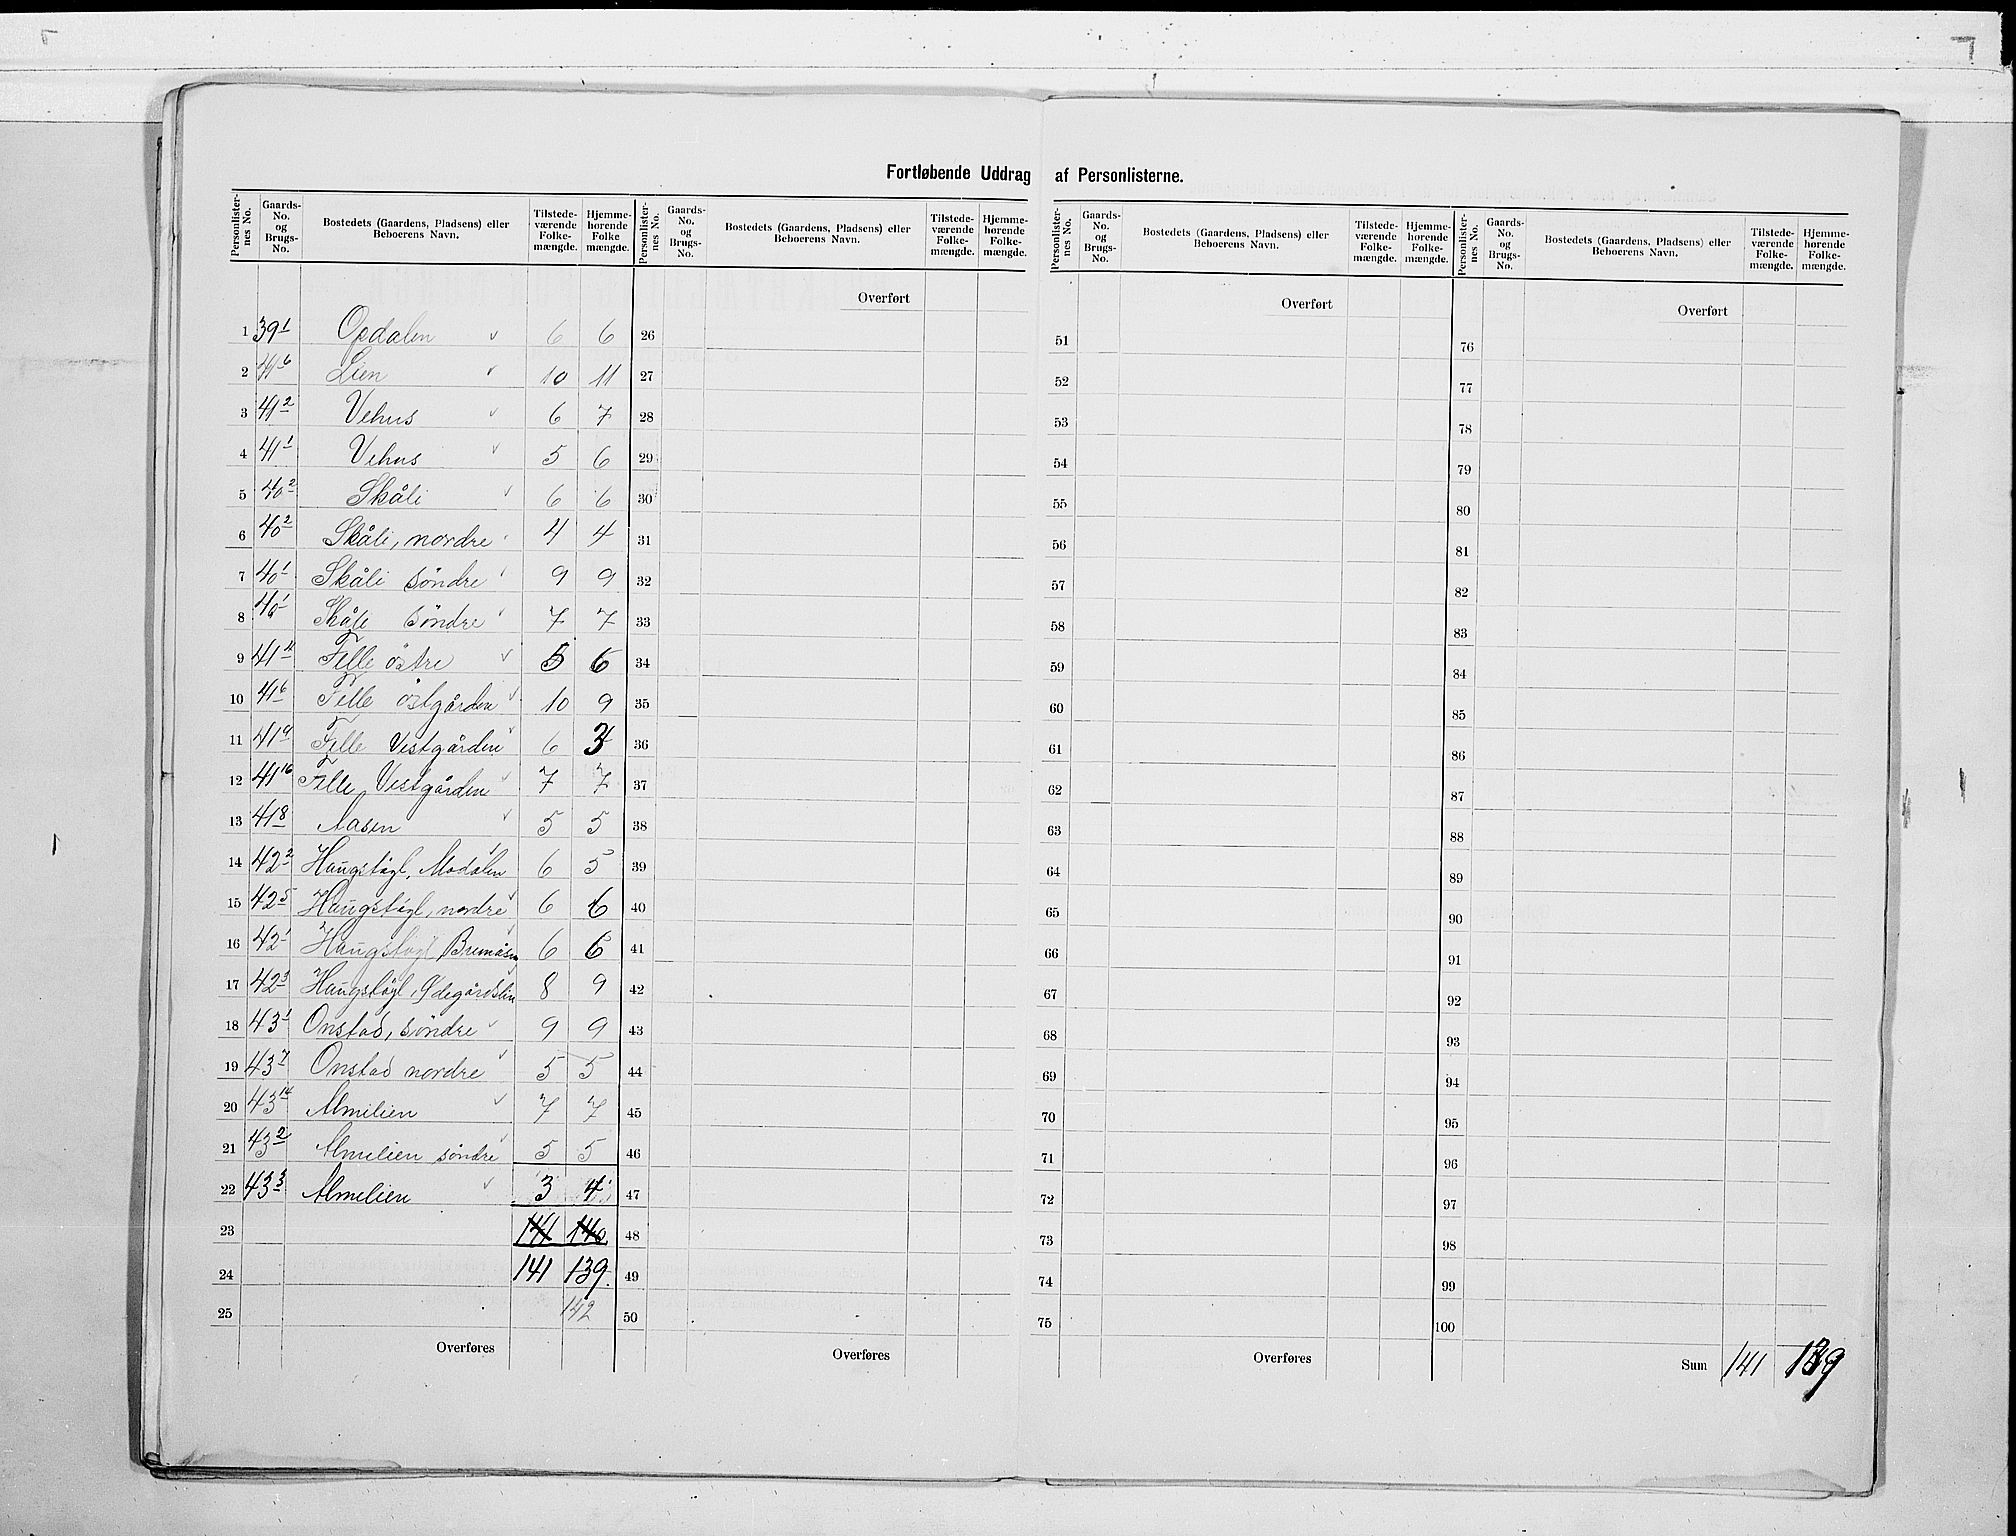 Fortløbende Uddrag af Personlisterne.
Personlisternes No. Gaards-No. og Brugs-No. Bostedets (Gaardens, Pladsens) eller Beboerens Navn. Tilstedeværende Folkemængde. Hjemmehørende Folkemængde.
Personlisternes No. Gaards-No. og Brugs-No. Bostedets (Gaardens, Pladsens) eller Beboerens Navn. Tilstedeværende Folkemængde. Hjemmehørende Folkemængde.
Personlisternes No. Gaards-No. og Brugs-No. Bostedets (Gaardens, Pladsens) eller Beboerens Navn. Tilstedeværende Folkemængde. Hjemmehørende Folkemængde.
Personlisternes No. Gaards-No. og Brugs-No. Bostedets (Gaardens, Pladsens) eller Beboerens Navn. Tilstedeværende Folkemængde. Hjemmehørende Folkemængde.
Overført Overført Overført
1 39 1 Opdalen 6 6 26 51 76
2 41 6 Lien 10 11 27 52 77
3 41 2 Vehus 6 7 28 53 78
4 41 1 Vehus 5 6 29 54 79
5 40 2 Skåli 6 6 30 55 80
6 40 2 Skåli, nordre 4 4 31 56 81
7 40 1 Skåli söndre 9 9 32 57 82
8 40 1 Skåli söndre 7 7 33 58 83
9 41 4 Felle östre 5 6 34 59 84
10 41 6 Felle östgården 10 9 35 60 85
11 41 9 Felle Vestgården 6 3 36 61 86
12 41 16 Felle Vestgården 7 7 37 62 87
13 41 8 Aasen 5 5 38 63 88
14 42 2 Haugstøgl, Modalen 6 5 39 64 89
15 42 5 Haugstøgl, nordre 6 6 40 65 90
16 42 1 Haugstøgl Bremåsen 6 6 41 66 91
17 42 3 Haugstøgl, Ødegårdslin 8 9 42 67 92
18 43 1 Onstad, söndre 9 9 43 68 93
19 43 7 Onstad nordre 5 5 44 69 94
20 43 14 Almelien 7 7 45 70 95
21 43 2 Almelien söndre 5 5 46 71 96
22 43 3 Almelien 3 4 47 72 97
23 141 140 48 73 98
24 141 139. 49 74 99
25 142 50 75 100
Overføres Overføres Overføres Sum 141 139